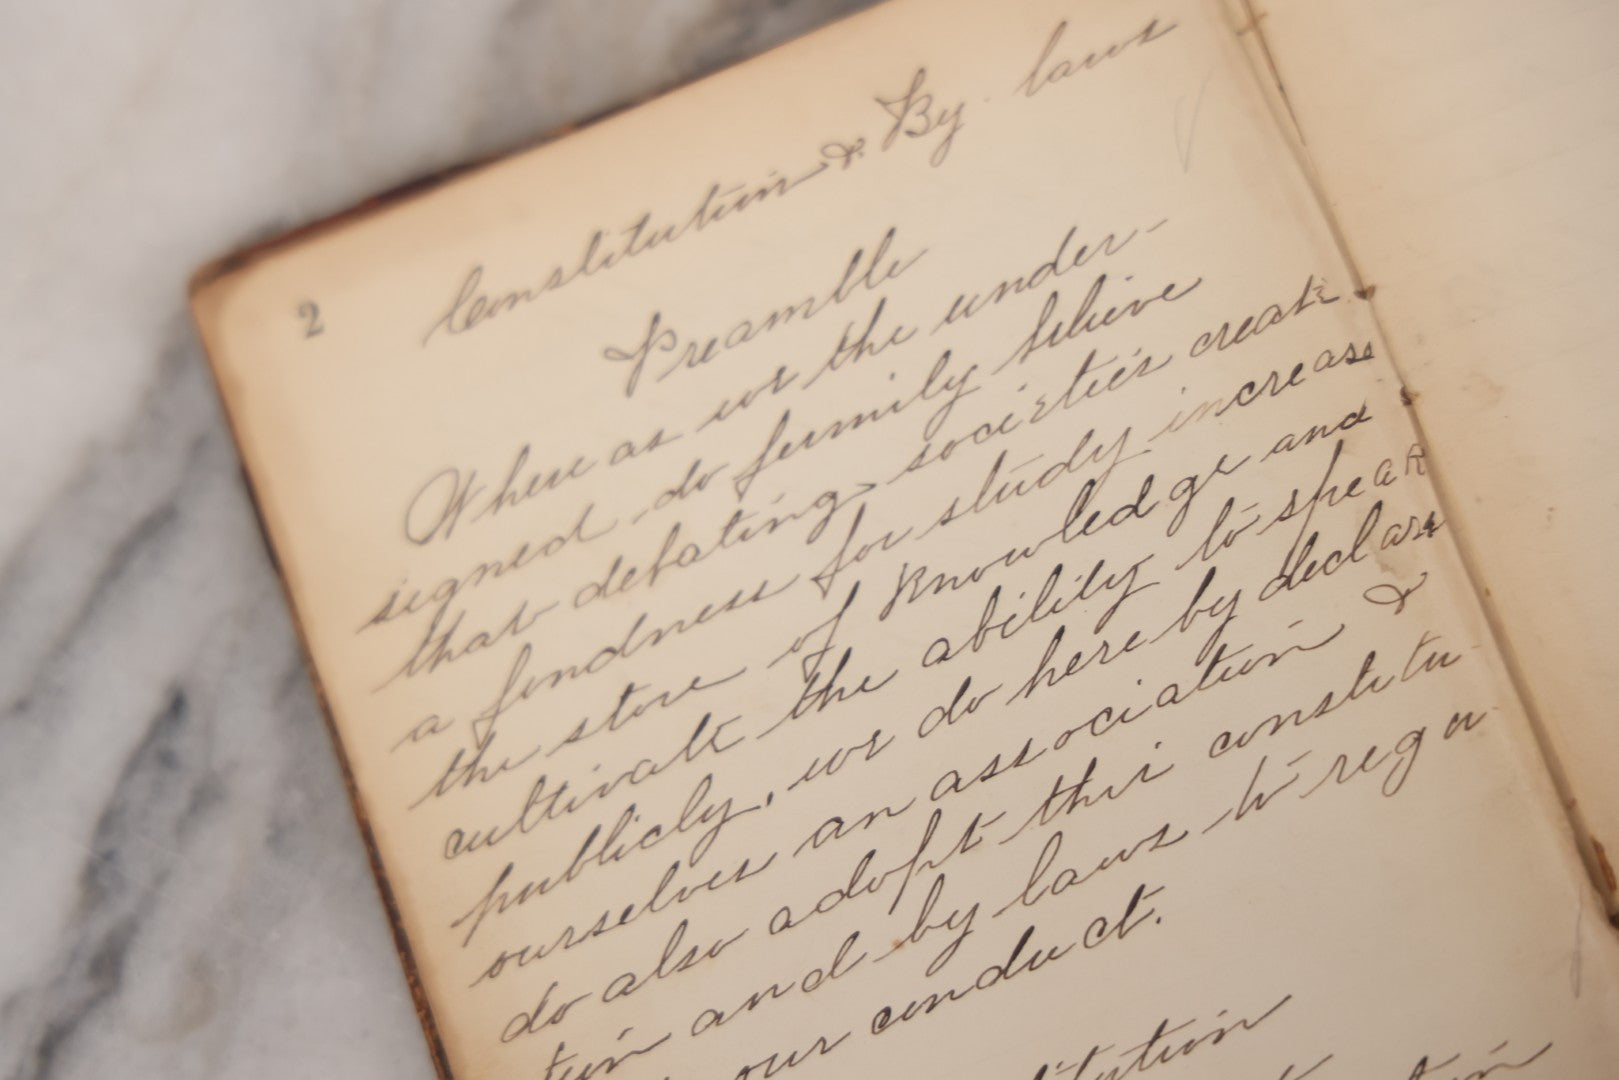 2
Constitution & By-laws
Preamble
Where as we the under-
signed do firmily believe
that debating societies create
a fondness for study increase
the store of knowledge and
cultivate the ability to speak
publicly, we do here by declare
ourselves an association &
do also adopt this constitu-
tion and by laws to regu-
our conduct.